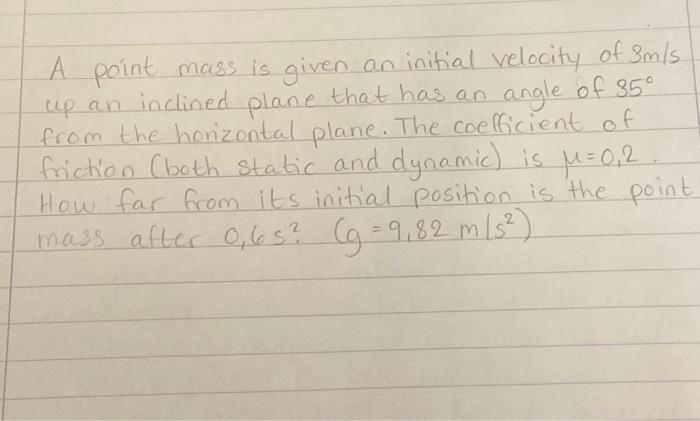 A point mass is given an initial velocity of 3m/s
up an inclined plane that has an angle of 35°
from the horizontal plane. The coefficient of
friction (both static and dynamic) is μ=0,2.
How far from its initial position is the point
mass after 0,6s? (g=9,82 m/s²)